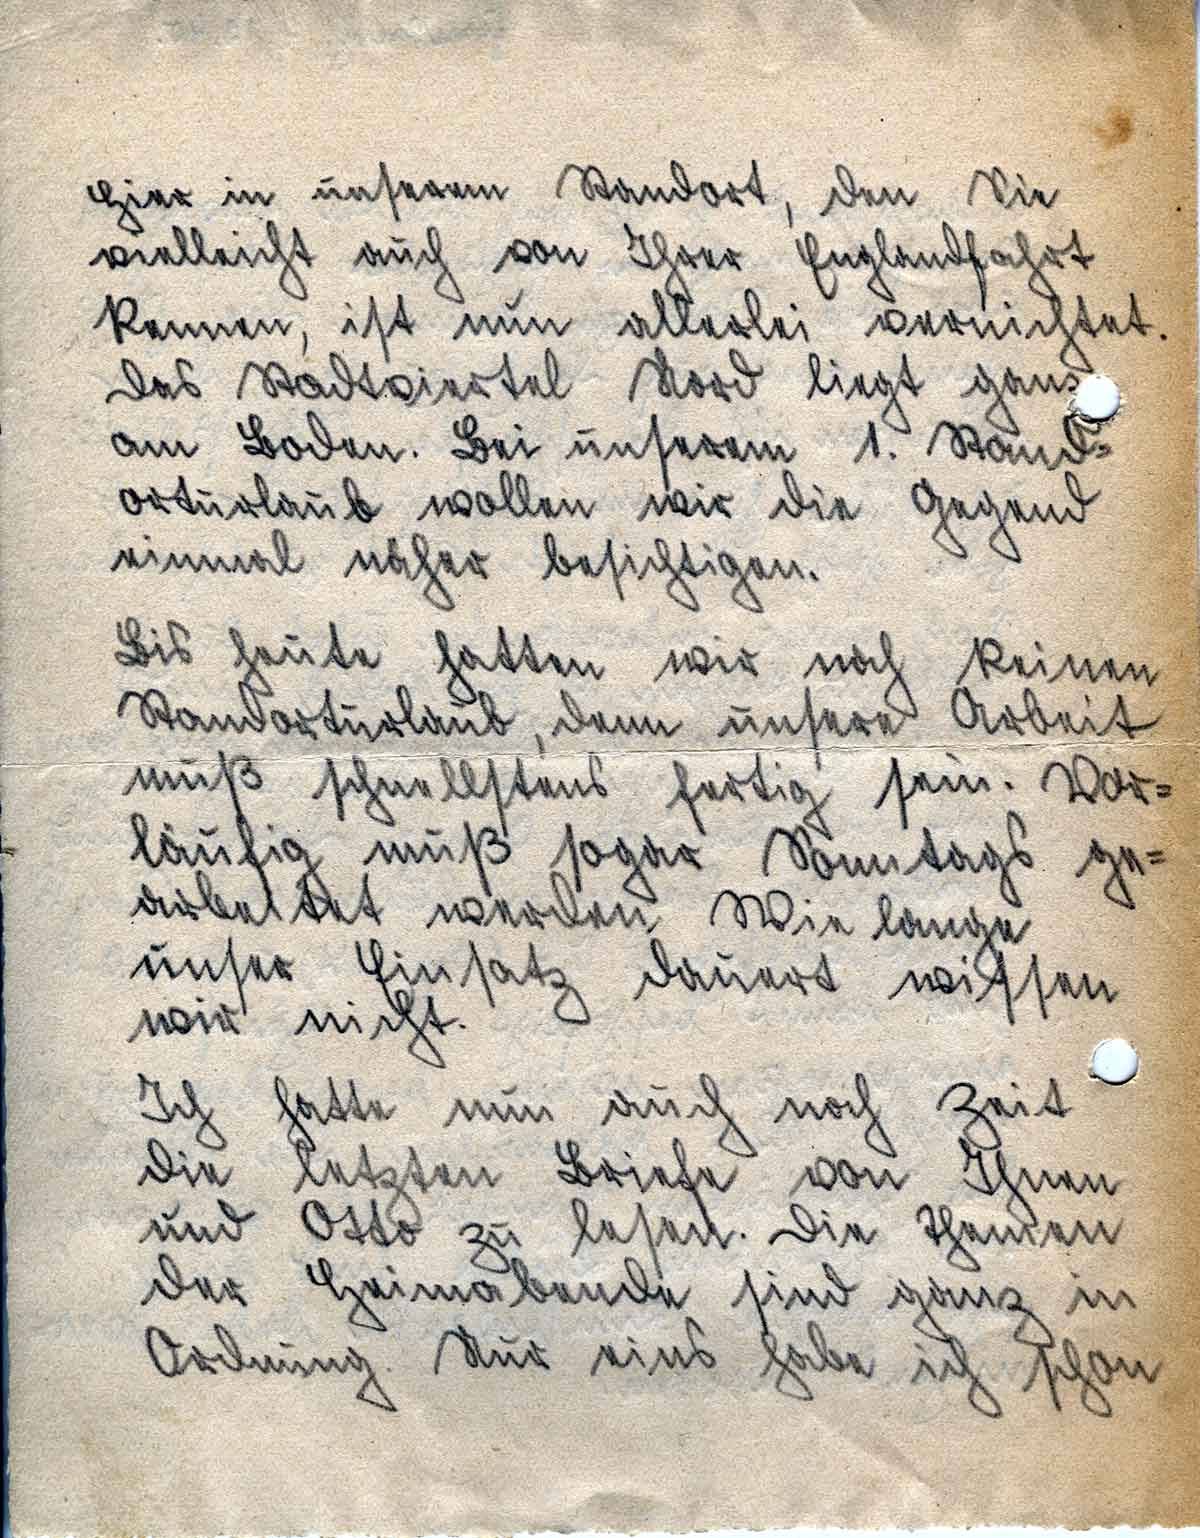 Hier in unserem Standort, den Sie
vielleicht auch von Ihrer Englandfahrt
kennen, ist nun allerlei vernichtet.
Das Stadtviertel Nord liegt ganz
am Boden. Bei unserem 1. Stand=
orturlaub wollen wir die Gegend
einmal näher besichtigen.
Bis heute hatten wir noch keinen
Standorturlaub, denn unsere Arbeit
muß schnellstens fertig sein. Vor=
läufig muß sogar Sonntags ge=
arbeitet werden. Wie lange
unser Einsatz dauert wissen
wir nicht.
Ich hatte nun auch noch Zeit
die letzten Briefe von Ihnen
und Otto zu lesen. Die Themen
der Heimabende sind ganz in
Ordnung. Nur eins habe ich schon